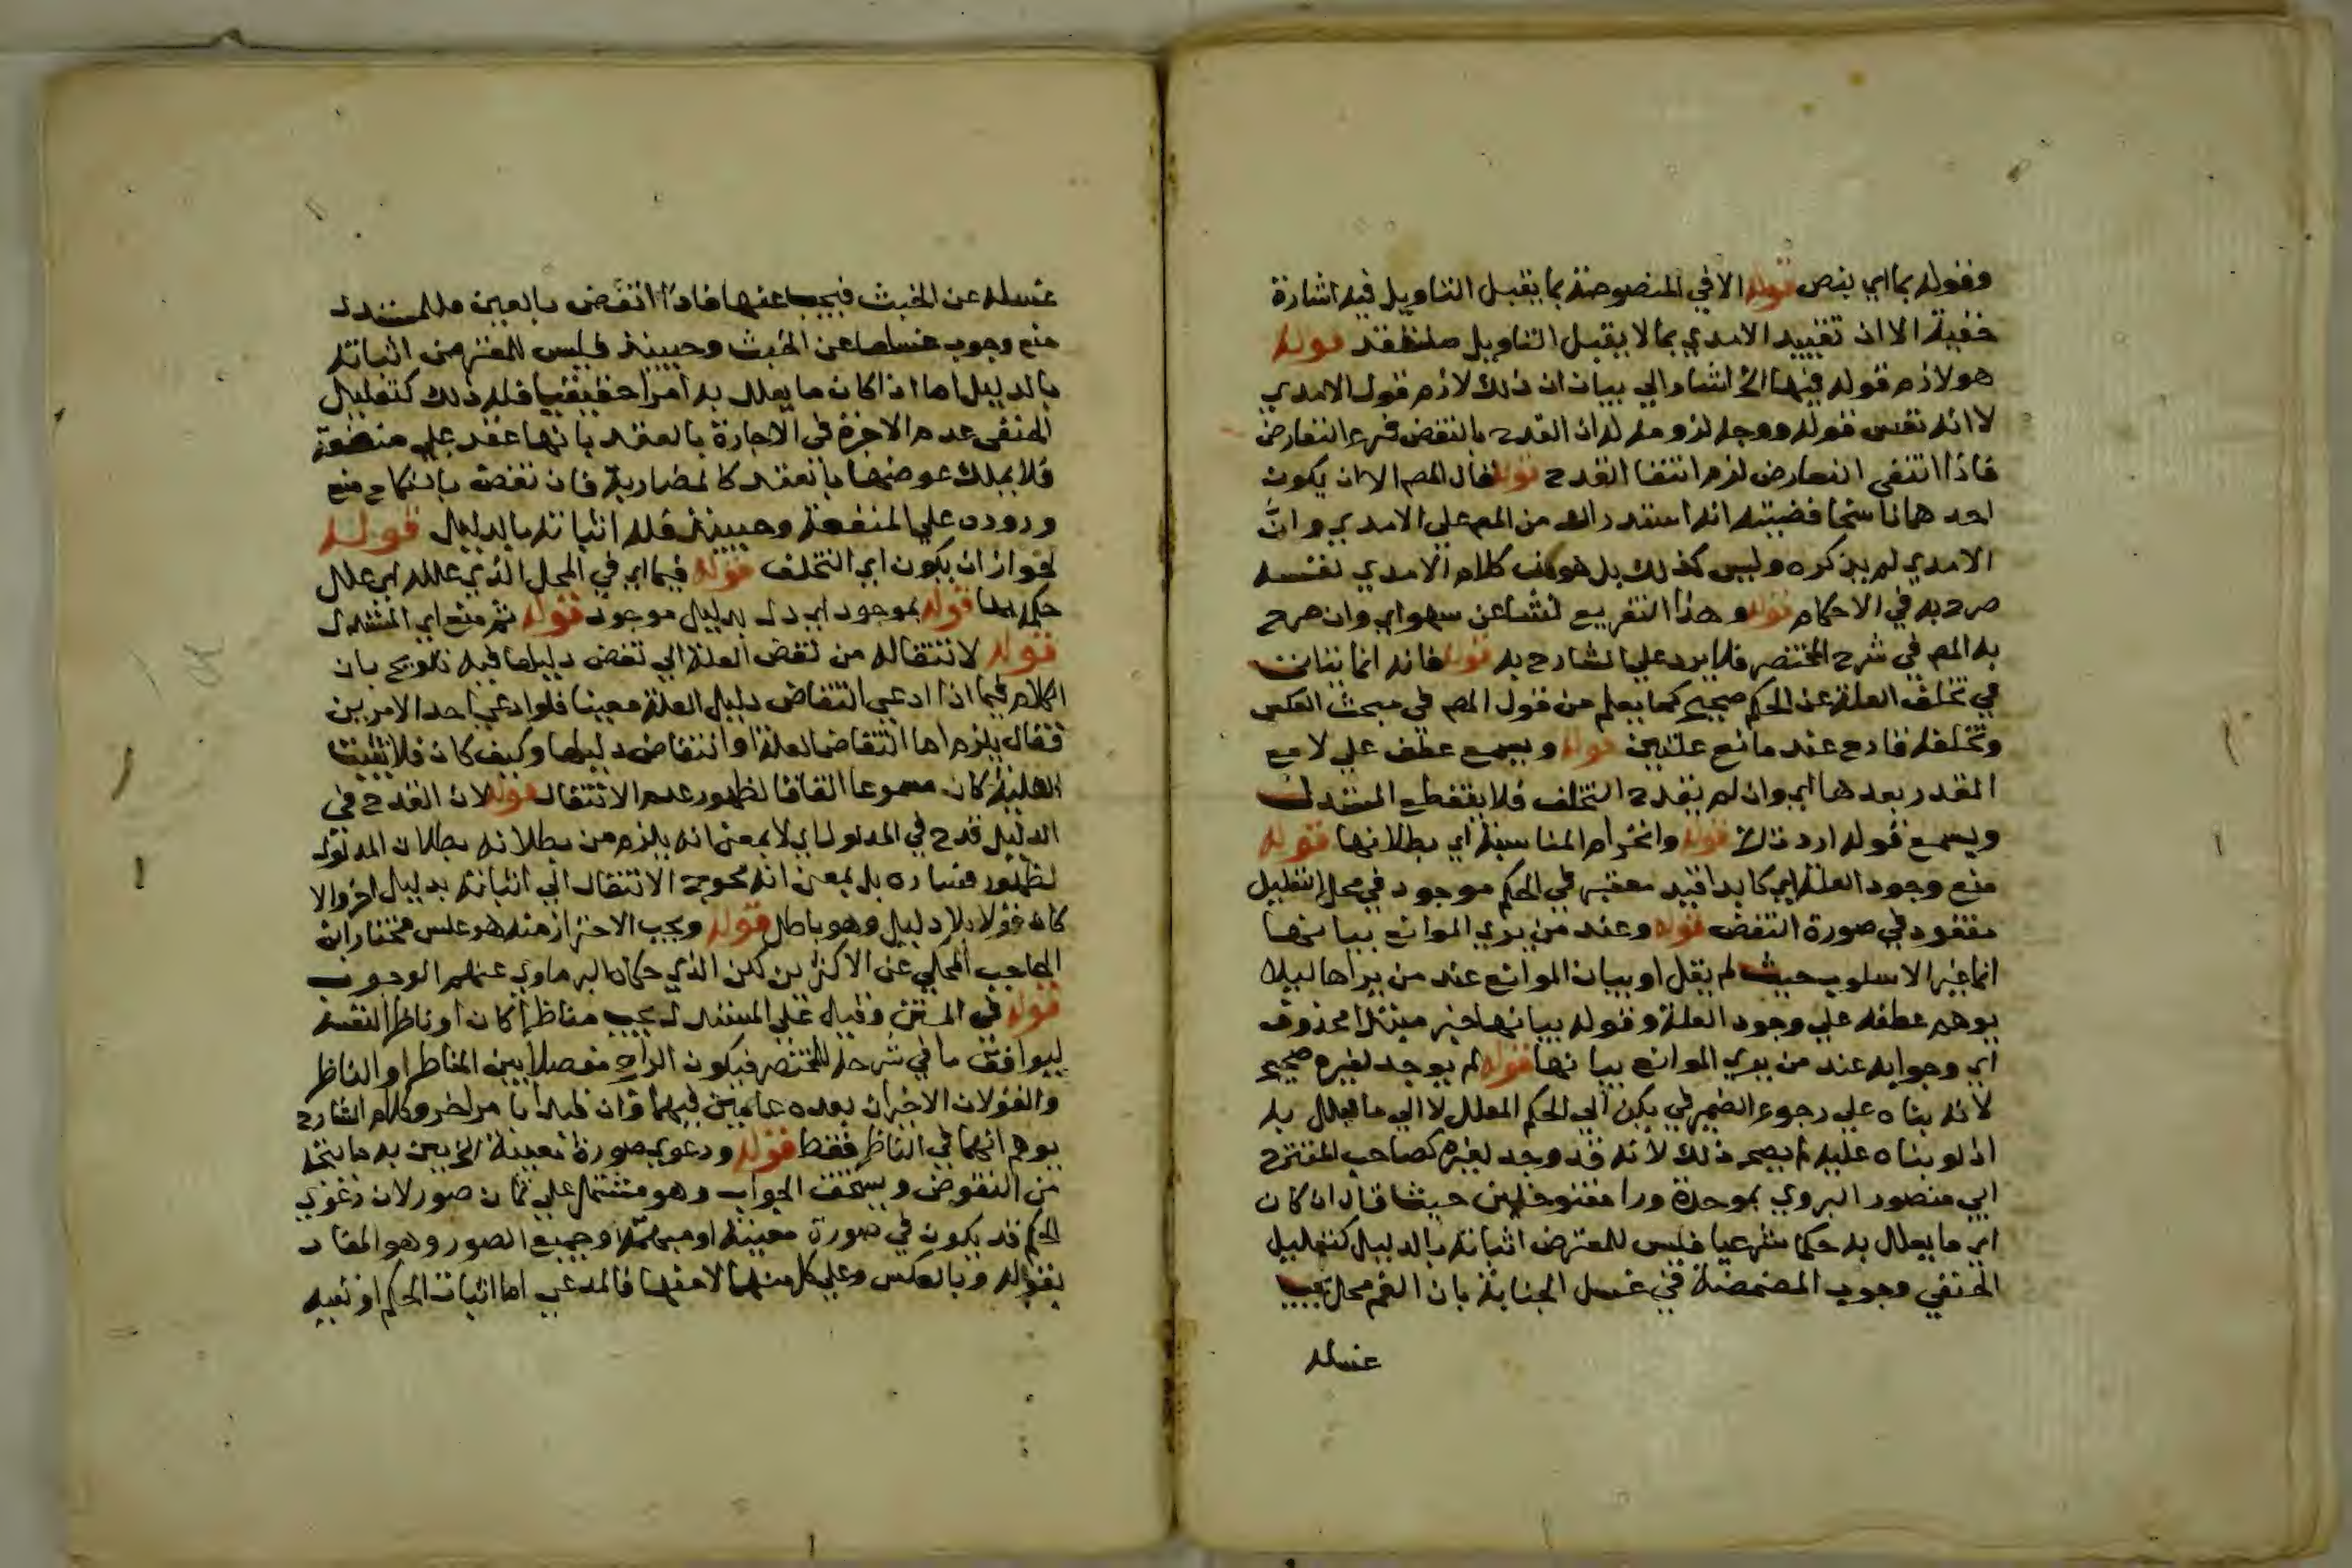 وقوله بما اي بنص قوله الا في المنصوصة بما يقبل التاويل فيه اشارة
خفية الا ان تقييد الامدي بما لا يقبل التاويل
هو لازم قوله فيها الخ اشار الي بيان ان ذلك لازم قول الامدي
لا انه نفس قوله ووجه لزومه له ان القدح بالنقض فرع التعارض
فاذا انتفي التعارض لزم انتفا القدح قوله قال المص الا ان يكون
احدهما ناسخا قضيته انه استدراك من المص علي الامدي وان
الامدي لم يذكره وليس كذلك بل هو من كلام الامدي نفسه
صرح به في الاحكام قوله وهذا التفريع نشا عن سهو اي وان صرح
به المص في شرح المختصر فلا يرد علي الشارح به قوله فانه انما يتاتي
في تخلف العلة عن الحكم صحيح كما يعلم من قول المص في مبحث العكس
وتخلفه قادح عند مانع علتين قوله ويسمع عطف علي لا مع
المقدر بعدها اي وان لم يقدح التخلف فلا ينقطع المستدل
ويسمع قوله اردت ذلك قوله وانخرام المناسبة اي بطلانها قوله
منع وجود العلة اي كابدا قيد معتبر في الحكم موجود في محل التعليل
مفقود في صورة النقض قوله وعند من يري الموانع بيانها
انما غير الاسلوب حيث لم يقل او بيان الموانع عند من يراها ليلا
يوهم عطفه علي وجود العلة وقوله بيانها خبر مبتدا محذوف
اي وجوابه عند من يري الموانع بيانها قوله لم يوجد لغيره صحيح
لانه بناه علي رجوع الضمير في يكن الي الحكم المعلل لا الي ما يعلل به
اذ لو بناه عليه لم يصح ذلك لانه قد وجد لغيره كصاحب المقترح
ابي منصور البروي بموحدة ورا مفتوحتين حيث قال ان كان
اي ما يعلل به حكما شرعيا فليس للمعترض اثباته بالدليل كتعليل
الحنفي وجوب المضمضة في غسل الجنابة بان الفم محل يجب
غسله
غسله عن الخبث فيجب عنها فاذا انتقض بالعين فللمستدل
منع وجوب غسلها عن الخبث وحينيذ فليس للمعترض اثباته
بالدليل اما اذا كان ما يعلل به امرا حقيقيا فله ذلك كتعليل
الحنفي عدم الاجرة في الاجارة بالعقد بانها عقد علي منفعة
فلا يملك عوضها بالعقد كالمضاربة فان نقضه بالنكاح منع
وروده علي المنفعة وحينيذ فله اثباته بالدليل قوله
لجواز ان يكون اي التخلف قوله فيما اي في المحل الذي علله اي علل
حكمه بها قوله بموجود اي دل بدليل موجود قوله ثم منع اي المستدل
قوله لانتقاله من نقض العلة الي نقض دليلها فيه تلويح بان
الكلام فيما اذا ادعي انتقاض دليل العلة معينا فلو ادعي احد الامرين
فقال يلزم اما انتقاض العلة او انتقاض دليلها وكيف كان فلا تثبت
العلية كان مسموعا اتفاقا لظهور عدم الانتقال قوله لان القدح في
الدليل قدح في المدلول اي لا بمعني انه يلزم من بطلانه بطلان المدلول
لظهور فساده بل بمعني انه يحوج الانتقال الي اثباته بدليل اخر والا
كان قولا بلا دليل وهو باطل قوله ويجب الاحتراز منه هو عكس مختار ابن
الحاجب المحكي عن الاكثرين لكن الذي حكاه البرماوي عنهم الوجوب
قوله في المتن وقيل علي المستدل يجب مناظرا كان او ناظرا لنفسه
ليوافق ما في شرحه للمختصر فيكون الراجح مفصلا بين المناظر او الناظر
والقولان الاخيران بعده عامين فيهما وان قيدا بامر اخر وكلام الشارح
يوهم انهما في الناظر فقط قوله ودعوي صورة معينة الخ بين به ما يتجه
من النقوض ويستحق الجواب وهو مشتمل علي ثمان صور لان دعوي
الحكم قد يكون في صورة معينة او مبهمة او جميع الصور وهو المفاد
بقوله وبالعكس وعلي كل منها لا منها فالمدعي اما اثبات الحكم او نفيه